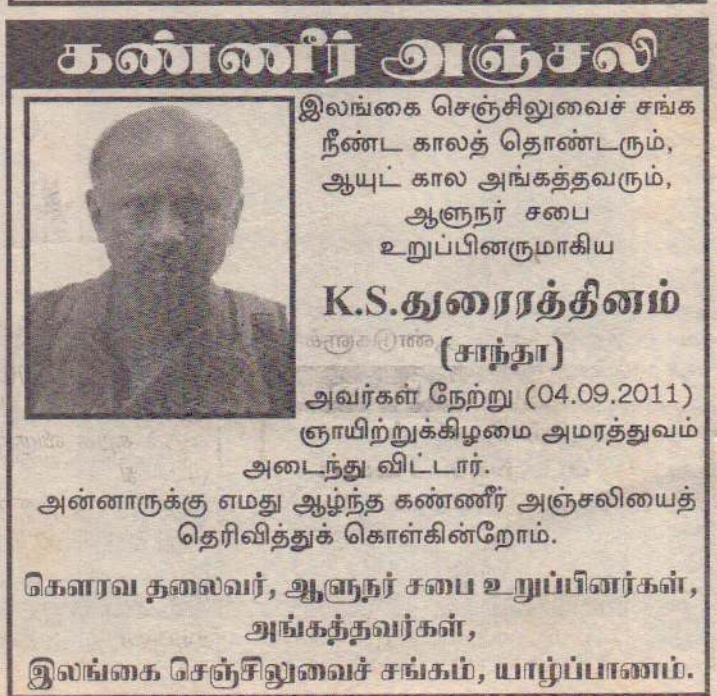 கண்ணீர் அஞ்சலி
இலங்கை செஞ்சிலுவைச் சங்க
நீண்ட காலத் தொண்டரும்,
ஆயுட் கால அங்கத்தவரும்,
ஆளுநர் சபை
உறுப்பினருமாகிய
K.S.துரைரத்தினம்
(சாந்தா)
அவர்கள் நேற்று (04.09.2011)
ஞாயிற்றுக்கிழமை அமரத்துவம்
அடைந்து விட்டார்.
அன்னாருக்கு எமது ஆழ்ந்த கண்ணீர் அஞ்சலியைத்
தெரிவித்துக் கொள்கின்றோம்.
கௌரவ தலைவர், ஆளுநர் சபை உறுப்பினர்கள்,
அங்கத்தவர்கள்,
இலங்கை செஞ்சிலுவைச் சங்கம், யாழ்ப்பாணம்.